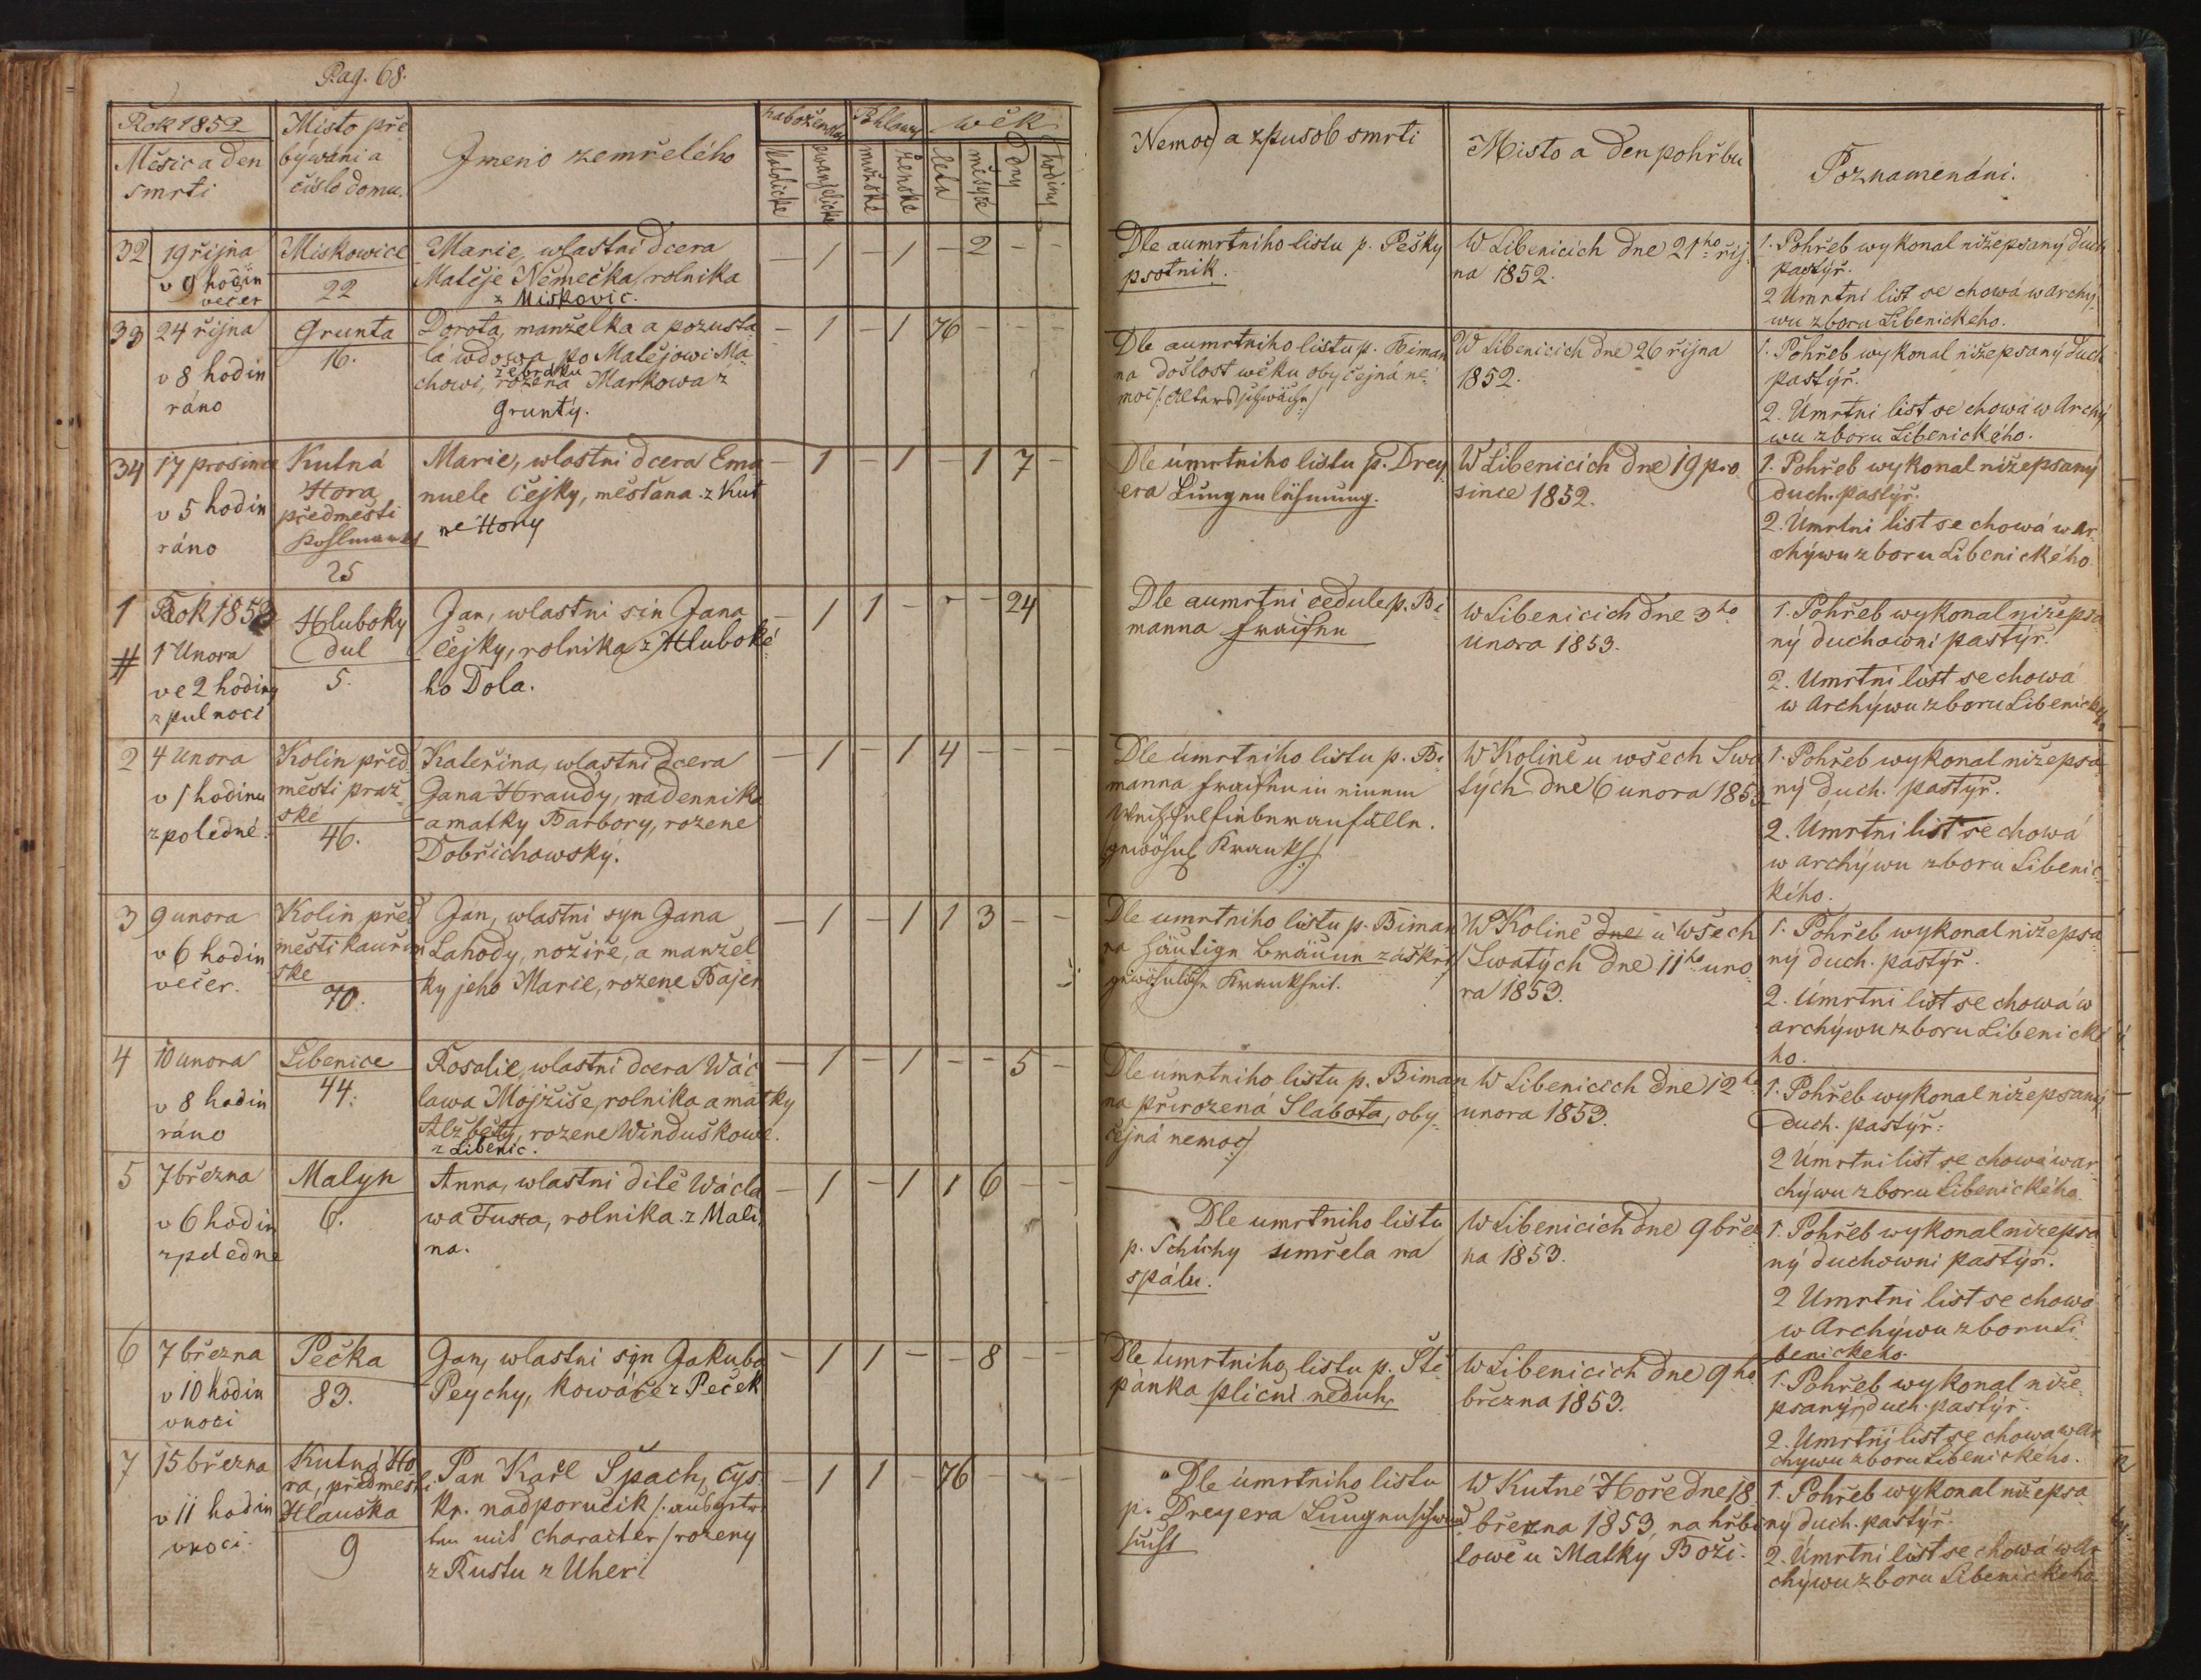 Pag. 68.
Rok 1852
Měsic a den
smrti
Misto pře
býwáni a
čislo domu.
Jmeno zemřelého
naboženstwi
Katolické
ewanjelické
Pohlawy
mužské
ženské
wěk
leta
měsyce
dny
hodiny
Nemoc a zpusob smrti
Misto a den pohřbu
Poznamenáni.
32
19 řijna
v 9 hodin
večer
Miskowice
22
Marie, wlastni dcera
Matěje Němečka, rolnika
z Miskovic.
— 1 — 1 — 2 — —
Dle aumrtniho listu p. Pešky
psotnik.
W Libenicich dne 21ho řij
na 1852.
1. Pohřeb wykonal nižepsaný duch
pastýř.
2 Umrtni list se chowá w archý
wu zboru Libenickeho.
33
24 řijna
v 8 hodin
ráno
Grunta
16.
Dorota, manželka a pozusta
lá wdowa po Matějowi Ma
chowi, rozená Markowa z
žebraku
Grunty.
— 1 — 1 76 — — —
Dle aumrtniho listu p. Biman
na došlost wěku obyčejná ne
moc /: Altersschwäche :/
W Libenicich dne 26 řijna
1852.
1. Pohřeb wykonal nižepsaný duch
pastýř.
2. Úmrtni list se chowá w Archý
wu zboru Libenického.
34
17 prosince
v 5 hodin
ráno
Kutná
Hora
předmesti
25
Marie, wlastni dcera Ema
nuele Čejky, měsťana z Kut
ne Hory
— 1 — 1 — 1 7 —
Dle úmrtniho listu p. Drey
era Lungenlähmung.
W Libenicich dne 19 pro
since 1852.
1. Pohřeb wykonal nižepsaný
duch. pastýř.
2. Úmrtni list se chowá w Ar
chýwu zboru Libenického
1
#
Rok 1853
1 Unora
ve 2 hodiny
z pul noci
Hluboky
Dul
5.
Jan, wlastni sin Jana
Čejky, rolnika z Hluboké
ho Dola.
— 1 1 — — — 24
Dle aumrtni cedule p. Bi
manna Fraisen
W Libenicich dne 3ho
unora 1853.
1. Pohřeb wykonal nižepsa
ný duchowni pastýř.
2. Umrtni list se chowá
w Archýwu zboru Libenickeho
2
4 Unora
v 1 hodinu
z poledné.
Kolin před
městi praž
ské
46.
Kateřina, wlastni dcera
Jana Hraudy, nadennika
a matky Barbory, rozene
Dobřichowský.
— 1 — 1 4 — — —
Dle úmrtniho listu p. Bi
manna Fraisen in einem
Wechselfieberanfalle.
W Kolině u wšech Swa
tých dne 6 unora 1853
1. Pohřeb wykonal nižepsa
ný duch. pastýř.
2. Umrtni list se chowá
w archýwu zboru Libenic
kého.
3
9 unora
v 6 hodin
večer.
Kolin před
městi kauřim
ske
70.
Jan, wlastni syn Jana
Lahody, nožiře, a manžel
ky jeho Marie, rozene Bajer
— 1 — 1 1 3 — —
Dle umrtniho listu p. Biman
na häutige Bräune záškrt
gewöhnliche Krankheit.
W Kolině dne u Wšech
Swatých dne 11ho uno
ra 1853.
1. Pohřeb wykonal nižepsa
ný duch. pastýř.
2. Úmrtni list se chowá w
archýwu zboru Libenické
ho.
4
10 unora
v 8 hodin
ráno
Libenice
44.
Rosalie, wlastni dcera Wác
lawa Mojžiše, rolnika a matky
Alžběty, rozene Winduškowe.
z Libenic.
— 1 — 1 — — 5 —
Dle úmrtniho listu p. Biman
na přirozená Slabota, oby
čejná nemoc /
W Libenicich dne 12ho
unora 1853.
1. Pohřeb wykonal nižepsaný
duch. pastýř.
2 Úmrtni list se chowá w ar
chýwu zboru Libenického.
5
7 března
v 6 hodin
zpoledne
Malyn
6.
Anna, wlastni ditě Wácla
wa Fuxa, rolnika z Mali
na.
— 1 — 1 1 6 — —
Dle umrtniho listu
p. Schichy umřela na
spálu.
W Libenicich dne 9 břez
na 1853.
1. Pohřeb wykonal nižepsa
ný duchowni pastýř.
2 Umrtni list se chowá
w Archýwu zboru Li
benickeho.
6
7 března
v 10 hodin
v noci
Pečka
83.
Jan, wlastni syn Jakuba
Peychy, kowáře z Peček
— 1 1 — — 8 — —
Dle úmrtniho listu p. Ště
pánka plicni neduh
W Libenicich dne 9ho
března 1853.
1. Pohřeb wykonal niže
psaný duch. pastýř.
2. Umrtni list se chowa w Ar
chywu zboru Libenického.
7
15 března
v 11 hodin
v noci.
Kutná Ho
ra, předmesti
Hlauška
9
Pan Karl Špach, Cýs.
Kr. nadporučik
mit Character / rozeny
z Rustu z Uher
— 1 1 — 76 — — —
Dle úmrtniho listu
p. Dreyera Lungenschwind
sucht
W Kutné Hoře dne 18
března 1853, na hřbi
towě u Matky Boži.
1. Pohřeb wykonal nižepsa
ný duch. pastýř.
2. Úmrtni list se chowá w Ar
chýwu zboru Libenického